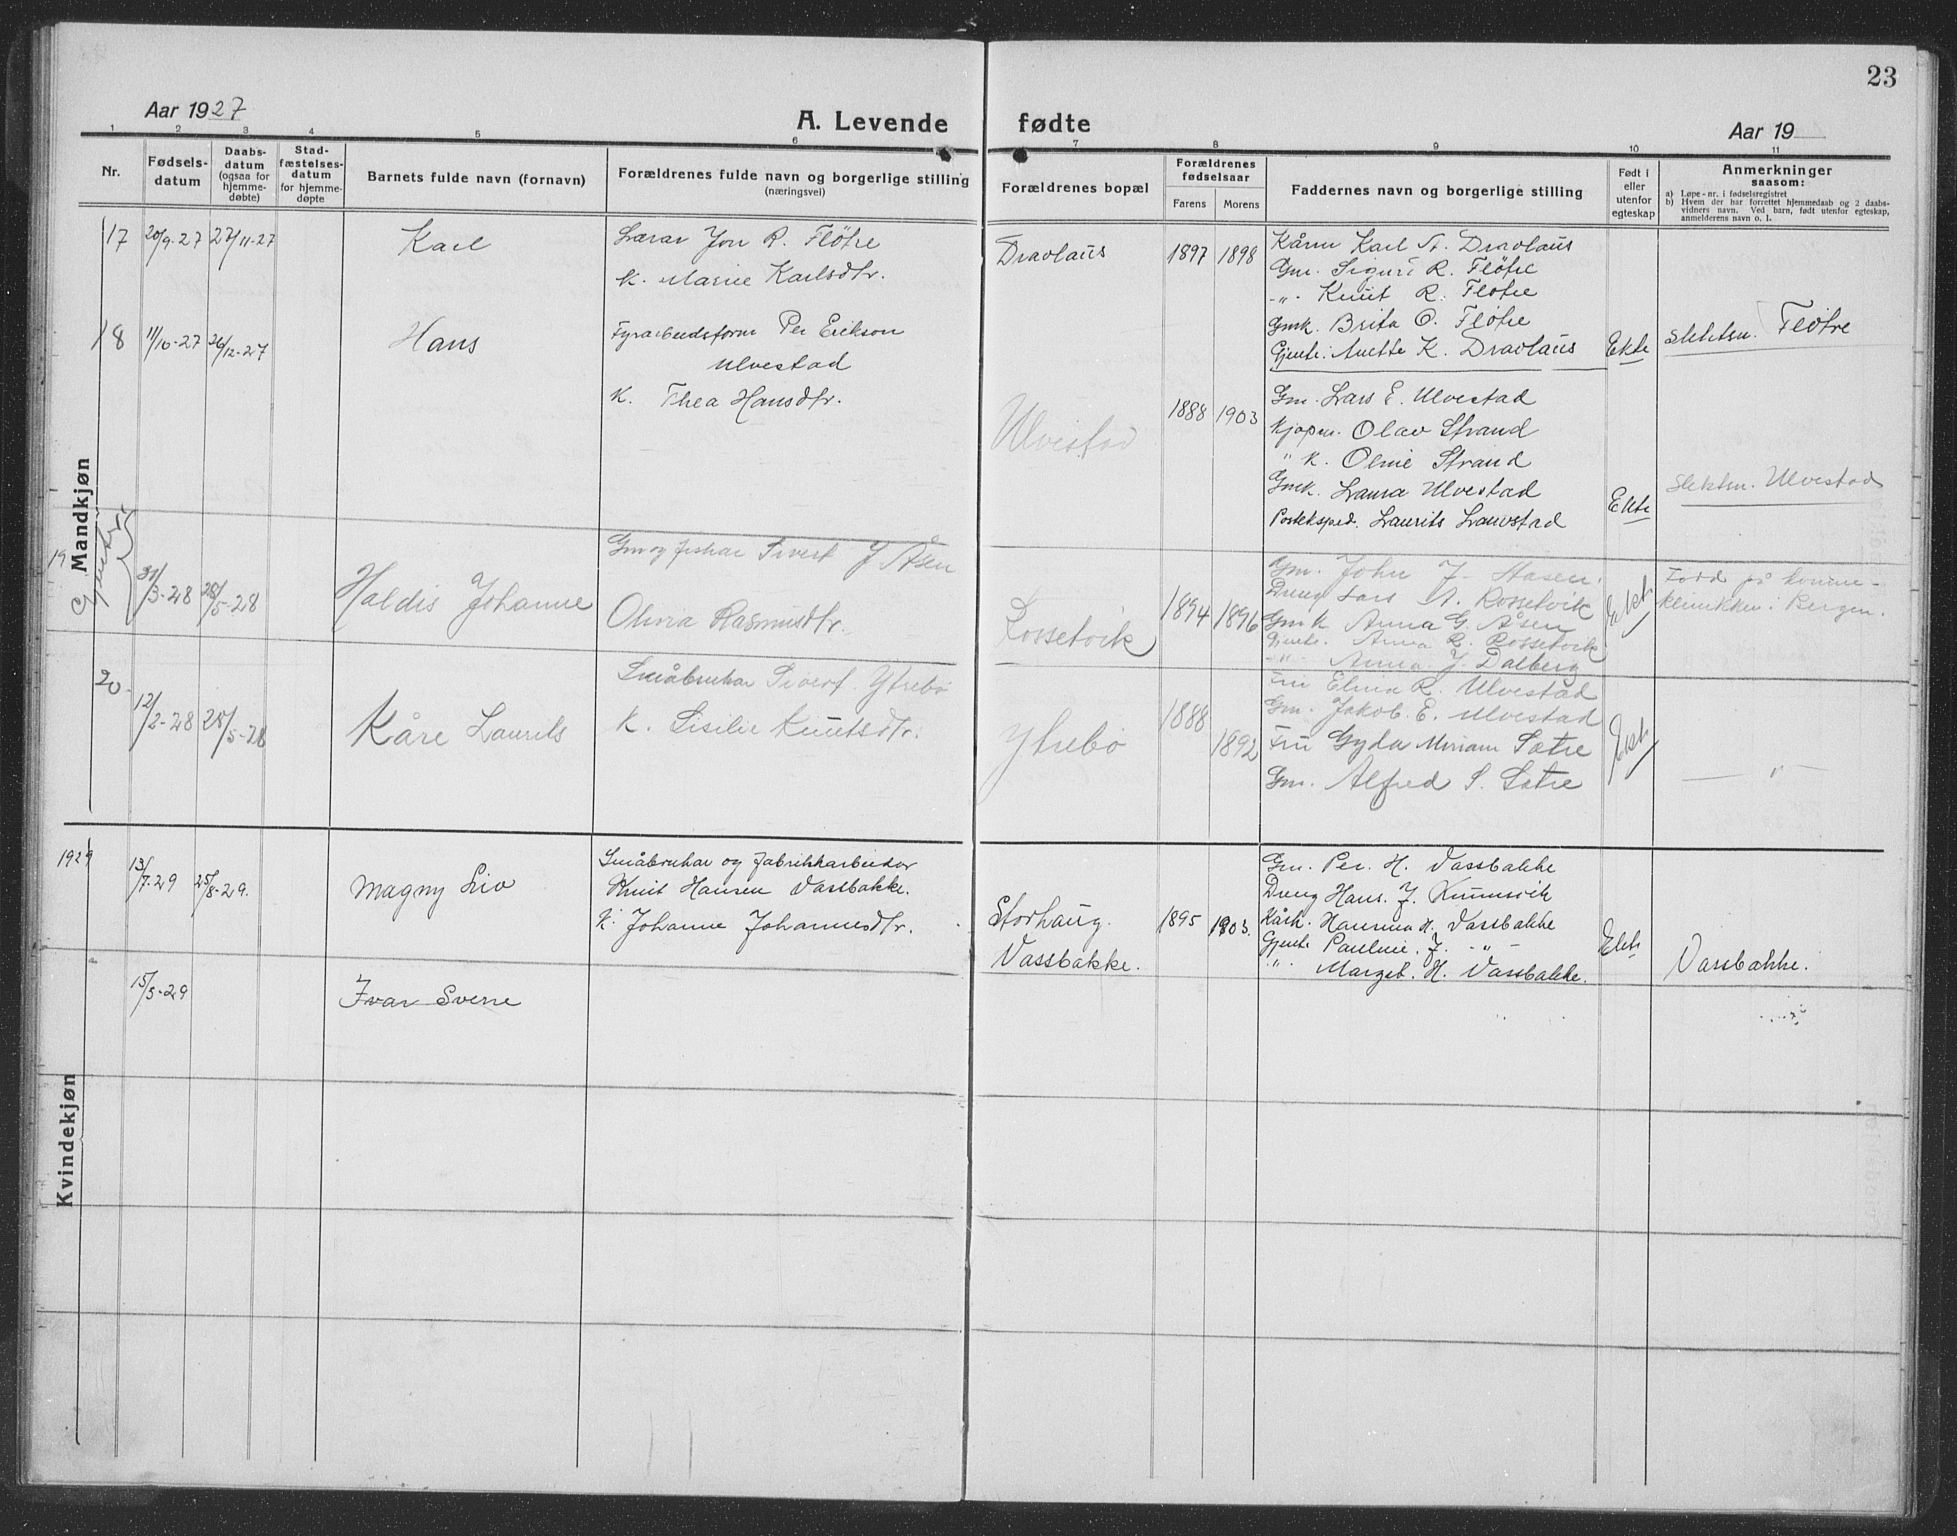 23
Aar 1927
A. Levende fødte
Aar 19
1 2 3 4 5 6 7 8 9 10 11
Nr.
Fødsels-
datum
Daabs-
datum
(ogsaa for
hjemme-
døbte)
Stad-
fæstelses-
datum
for hjemme-
døpte
Barnets fulde navn (fornavn)
Forældrenes fulde navn og borgerlige stilling
(næringsvei)
Forældrenes bopæl
Forældrenes
fødselsaar
Farens Morens
Faddernes navn og borgerlige stilling
Født i
eller
utenfor
egteskap
Anmerkninger
saasom:
a) Løpe-nr. i fødselsregistret
b) Hvem der har forrettet hjemmedaab og 2 daabs-
vidners navn. Ved barn, født utenfor egteskap,
anmelderens navn o. l.
Mandkjøn
17 20/9-27 27/11-27 Karl
Lærar Jon R. Fløtre
K. Marie Karlsdtr.
Dravlaus 1897 1898
Kårm Karl A. Dravlaus
Gm. Sigurd R. Fløtre
-"- Knut R. Fløtre
Gmk. Brita O. Fløtre
Gjente: Anette K. Dravlaus
Ekte
Slektsn. Fløtre
18 11/10-27 26/12-27 Hans
Fyrarbeidsform Per Erikson
Ulvestad
K. Thea Hansdtr.
Ulvestad 1888 1903
Gm. Lars E. Ulvestad
Kjøpm. Olav Strand
" K. Oline Strand
Gmk. Laura Ulvestad
Posteksped. Laurits Lauvstad
Ekte
Slektsn. Ulvestad
19 31/3-28 28/5-28 Haldis Johanne
Gm og fiskar Sivert J Åsen
Olivia Rasmusdtr.
Rossetvik 1894 1896
Gm. John J. Aasen.
Dreng Lars A. Rossetvik
Gmk Anna G. Åsen
Gjente. Anna R. Rossetvik
-"- Anna J. Dalberg
Ekt.
Fødd på kvinne-
klinikken i Bergen.
20 12/2-28 28/5-28 Kåre Laurits
Småbrukar Sivert Ytrebø
K. Sisilie Knutsdtr.
Ytrebø 1888 1892
Fru Elina R. Ulvestad
Gm. Jakob. E. Ulvestad
Fru Gyda Miriam Sætre
Gm. Alfred S. Sætre
Ekt.
— " —
Kvindekjøn
1929 13/7-29 25/8-29. Magny Liv
Småbrukar og fabrikkarbeidar
Knut Hansen Vassbakke.
K. Johanne Johannesdtr.
Storhaug.
Vassbakke.
1895 1903.
Gm. Per. H. Vassbakke
Dreng Hans. J.
Kårk. Hansina H. Vassbakke
Gjente Pauline. J. -"-
"- Marget. H. Vassbakke.
Ekte
Vassbakke.
15/5-29 Ivar Sverre